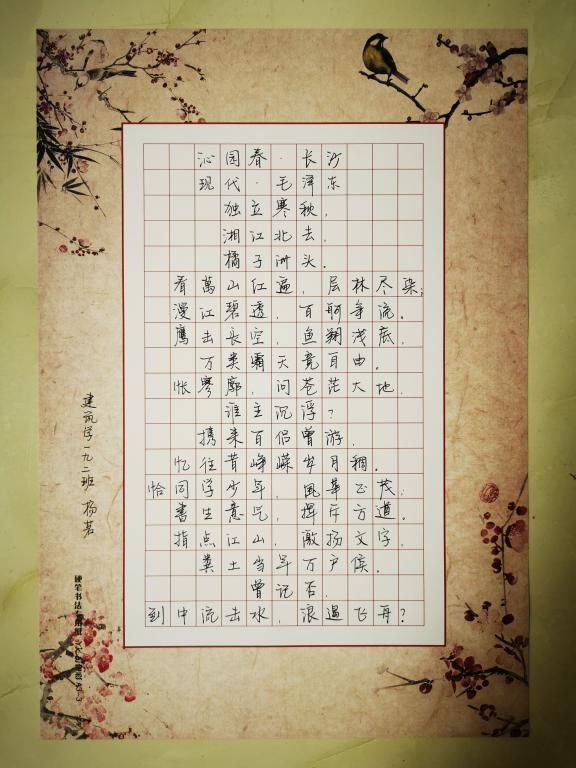 沁园春·长沙
现代·毛泽东
独立寒秋,
湘江北去,
橘子洲头。
看萬山红遍,层林尽染;
漫江碧透,百舸争流。
鹰击长空,鱼翔浅底,
万类霜天竞自由。
怅寥廓,问苍茫大地,
谁主沉浮?
携来百侣曾游,
忆往昔峥嵘岁月稠。
恰同学少年,風華正茂;
書生意气,挥斥方遒。
指点江山,激扬文字,
粪土当年万户侯。
曾记否,
到中流击水,浪遏飞舟?
建筑学一九二班 杨茗
硬笔书法